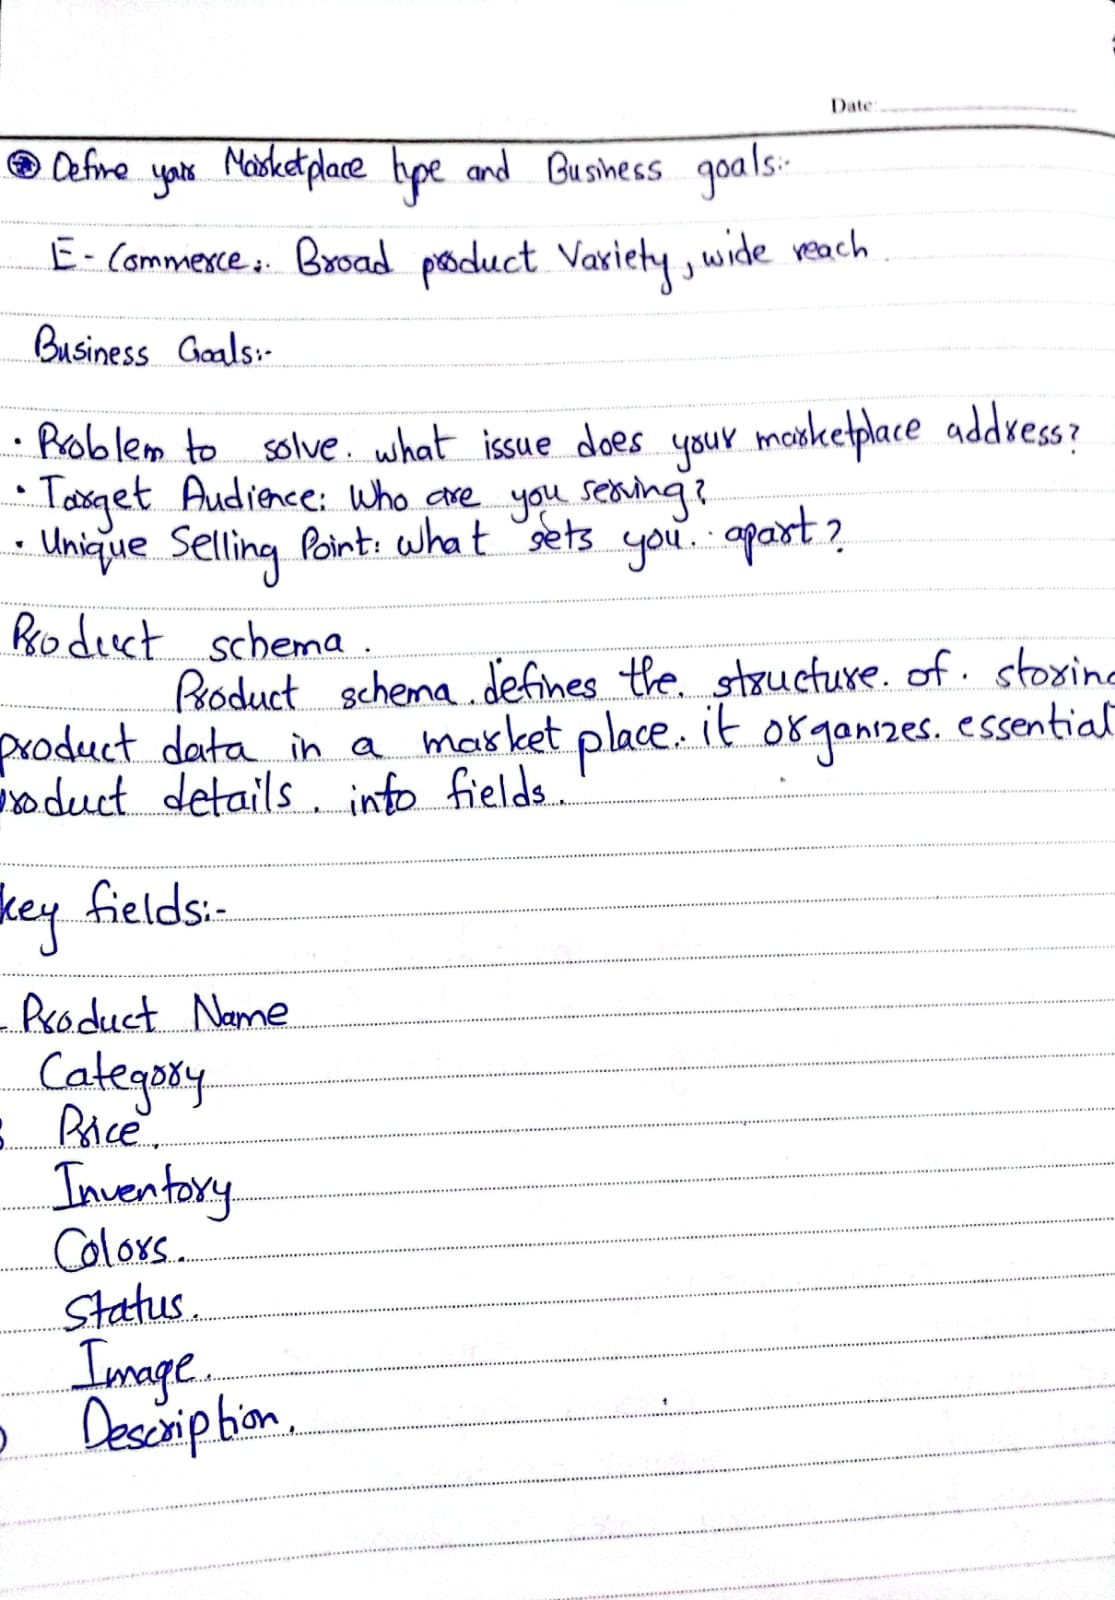 Date
Define your Marketplace type and Business goals:-
E-Commerce:. Broad product Variety, wide reach
Business Goals:-
· Problem to solve. what issue does your marketplace address?
· Target Audience: Who are you serving?
· Unique Selling Point: What sets you. apart?
Product schema.
Product schema. defines the. structure. of. storing
product data in a market place. it organizes. essential
product details. into fields.
key fields:-
Product Name
Category
Price.
Inventory
Colors.
Status.
Image.
Description.